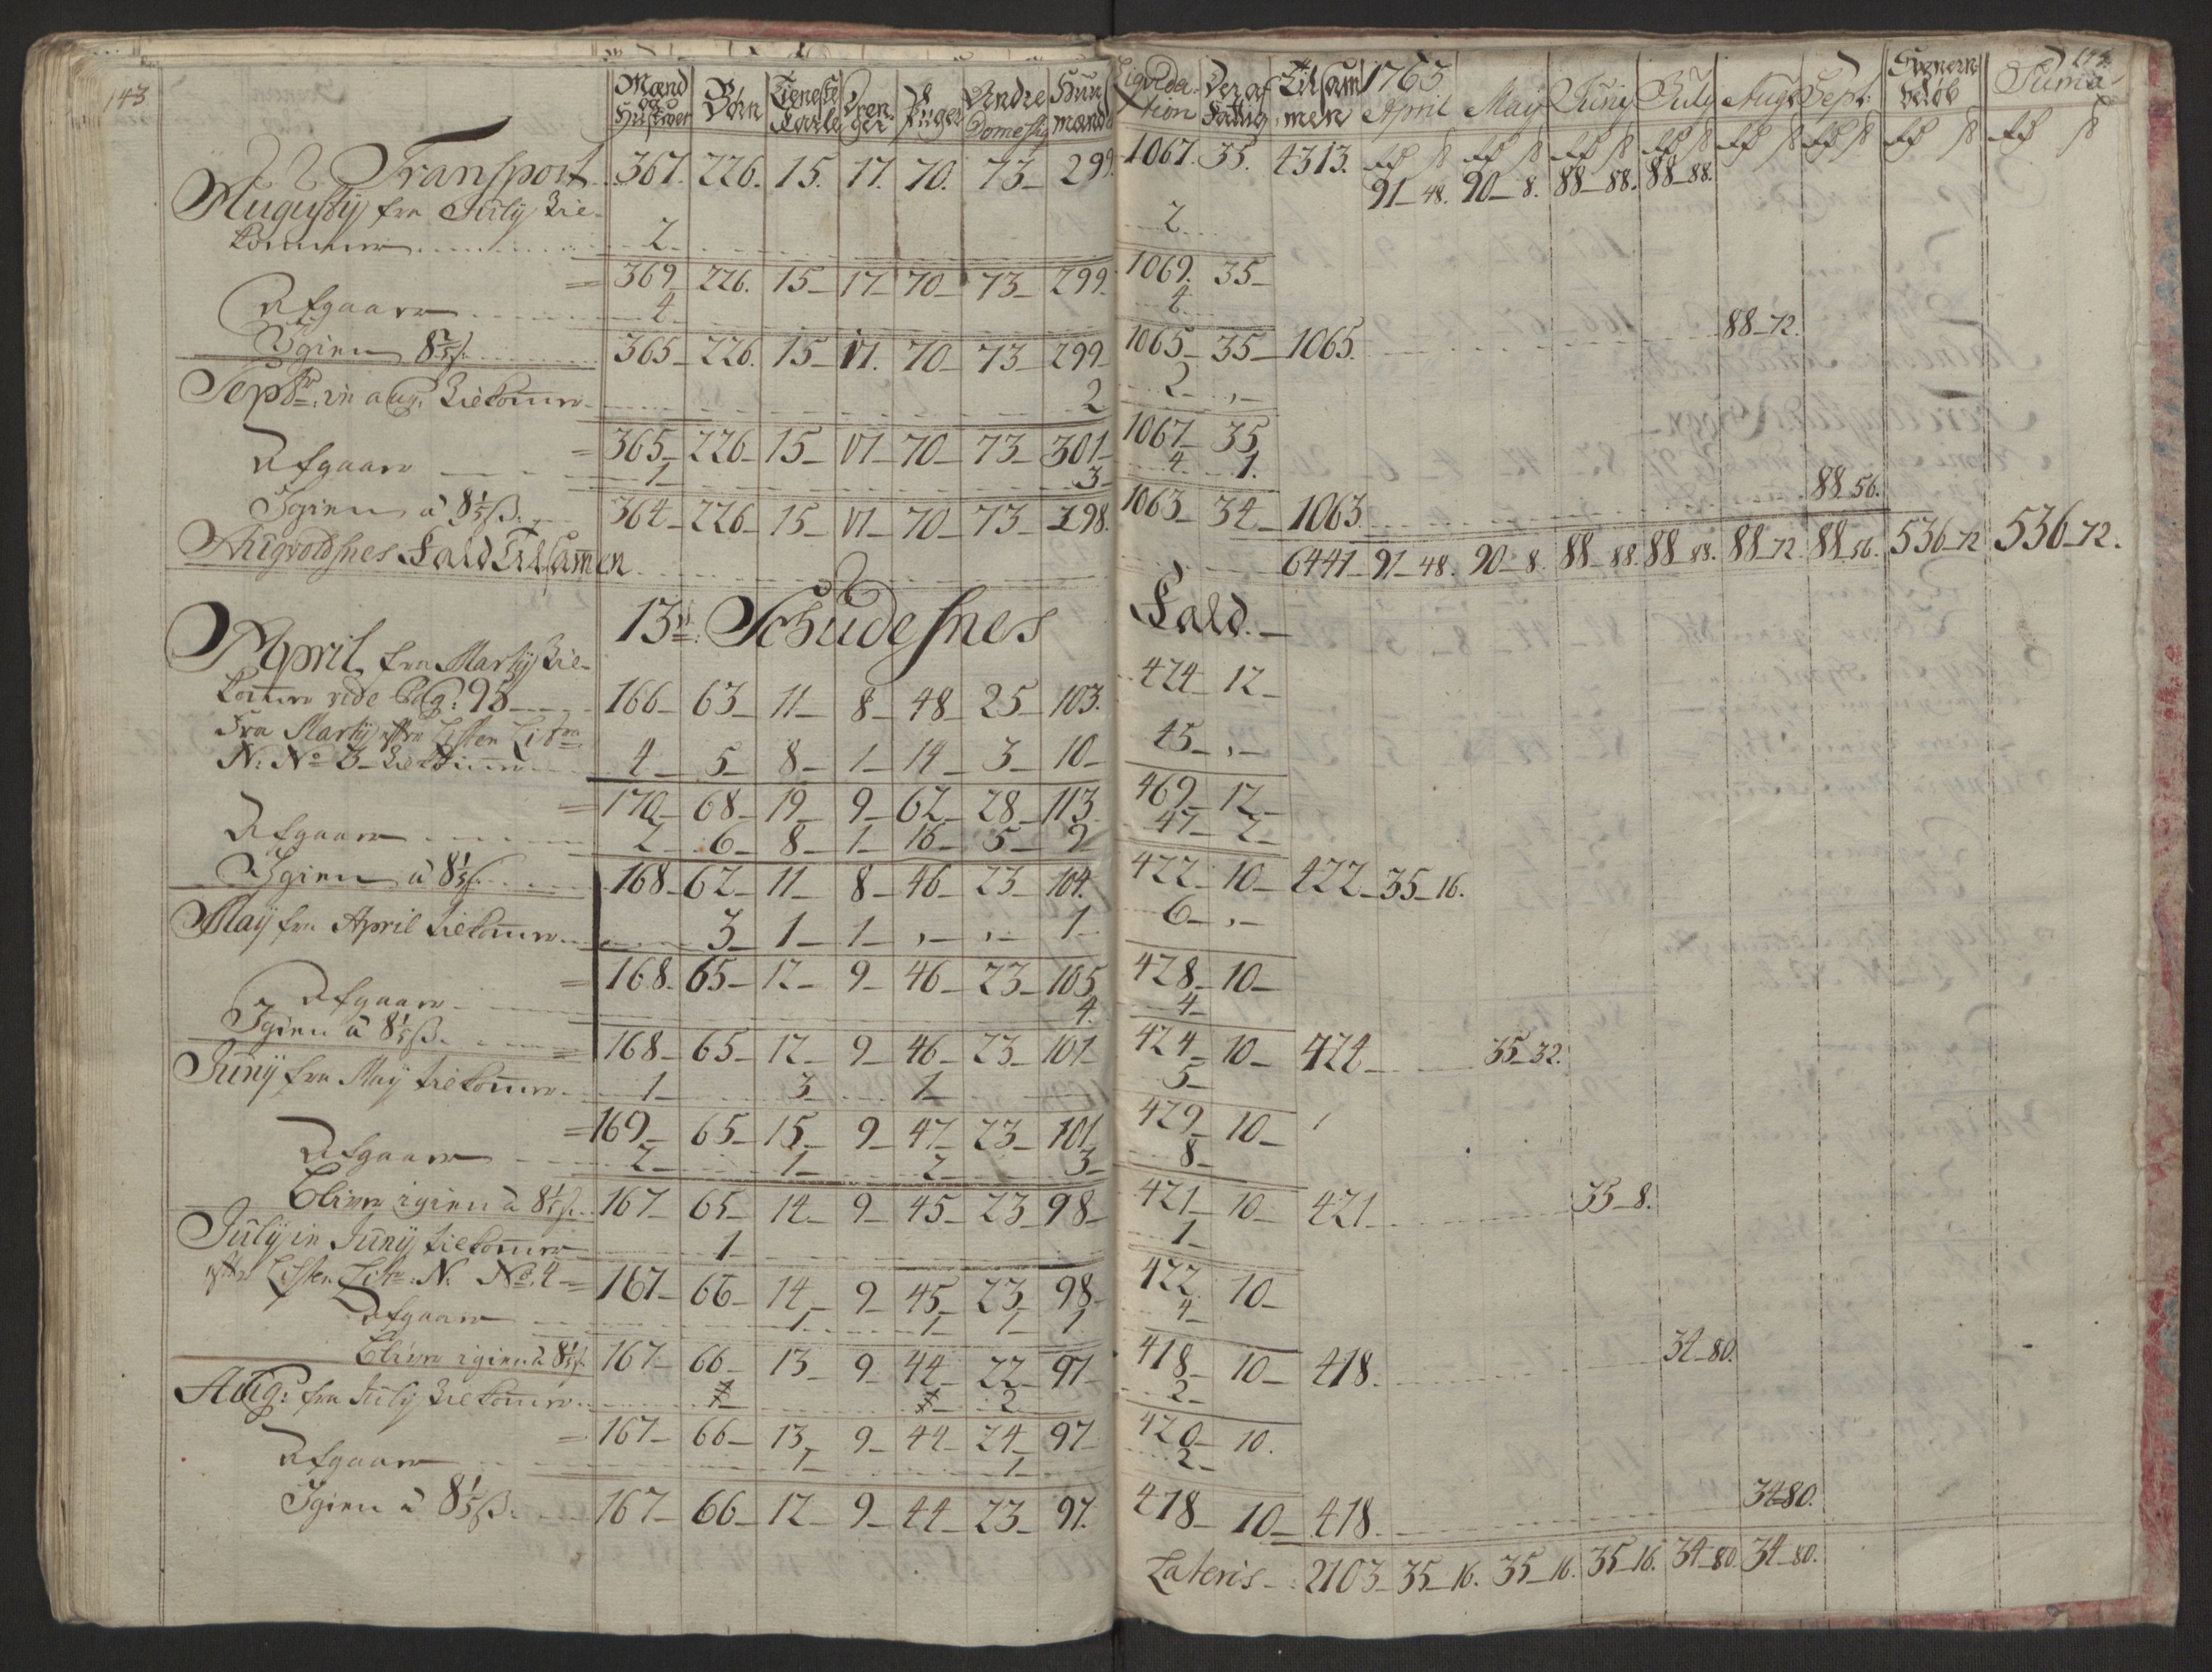 143
Mænd og Hustroer | Børn | Tieneste Karle | Dren- ger | Piger | Andre Domestiq | Huus mænd | Liqvida- tion | Der af Fattig | Tilsam men | 1763 April | May | Juny | July | Augs | Sept: | Qvenen beløb | Suma
Rd ß | Rd ß | Rd ß | Rd ß | Rd ß | Rd ß | Rd ß | Rd ß
Transport 367. 226. 15. 17. 70. 73 299. 1067. 35. 4313. 91 48. 90 8. 88 88. 88 88.
Augusty fra July tile-
kommer 2 2
= 369 226. 15 17 70 73 299. 1069. 35
Afgaaer 4 4
Igien 8 1/3 ß. 365 226. 15 17. 70 73 299 1065 35 1065. 88 72.
Septbr. in aug. tilkommer 2 2 ,
= 365 226 15 17 70 73 301 1067 35
Afgaaer 1 3 4 1.
Igien à 8 1/3 ß. 364 226 15 17 70 73 298. 1063 34 1063. 88 56.
Augvoldsnes Fald Tilsammen 6441 91 48. 90 8. 88 88. 88 88. 88 72. 88 56. 536 72 536 72.
13de Schudesnes Fald.
April fra Marty tile-
kommer vide Pag: 95 166 63 11 8 48 25 103. 424 12
Fra Marty efter Listen Litra
N: No 3 tilkommer 4 5 8 1 14 3 10 45 ,
= 170 68 19 9 62 28 113 469 12
Afgaaer 2 6 8 1 16 5 9 47 2
Igien à 8 1/3 ß. 168 62 11 8 46 23 104. 422 10 422 35 16.
May fra April tilkommer 3 1 1 , , 1 6 ,
= 168. 65 12 9 46 23 105 428 10
Afgaaer 4. 4
Igien à 8 1/3 ß. = 168 65 12 9 46 23 101 424 10 424 35 32.
Juny fra May tilkommer 1 3 1 5
= 169 65 15 9 47 23 101 429 10
Afgaaer 2 1 2 3 8
bliver igien à 8 1/3 ß. 167 65 14 9 45 23 98 421 10 421 35 8.
July in Juny tilkommer 1 1
efter Listen Litr: N. No. 4 = 167 66 14 9 45 23 98 422 10
Afgaaer 1 1 1 1 4
bliver igien à 8 1/3 ß. 167 66 13 9 44 22 97 418 10 418. 34 80.
Aug: fra July tilkommer 2 2
= 167 66 13 9 44 24 97 420 10.
Afgaaer 1 1 2
Igien à 8 1/3 ß. 167 66 12 9 44 23 97. 418 10 418. 34 80.
Lateris 2103 35 16. 35 16. 35 16. 34 80. 34 80.